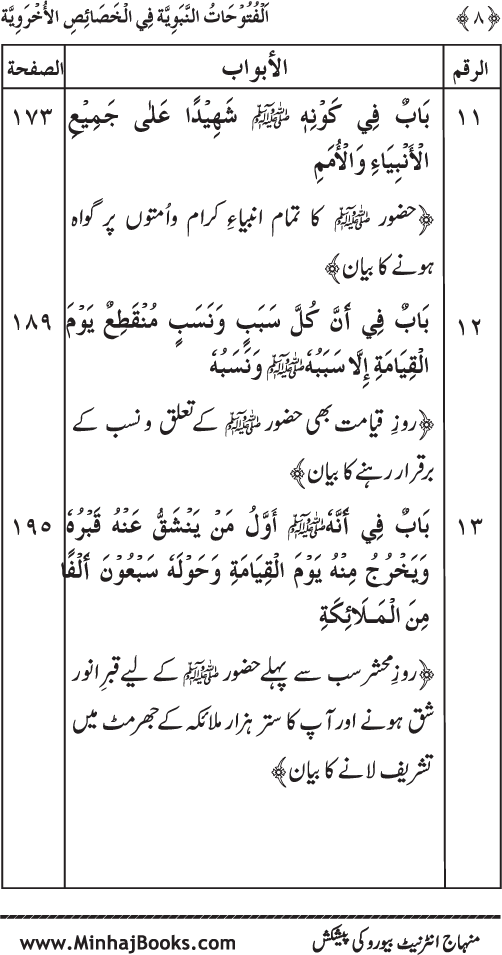 ﴿٨﴾ اَلْفُتُوْحَاتُ النَّبَوِيَّة فِي الْخَصَائِصِ الْأُخْرَوِيَّة
الرقم الأبواب الصفحة
١١ بَابٌ فِي كَوْنِهٖ ﷺ شَهِيْدًا عَلٰى جَمِيْعِ ١٧٣
الْأَنْبِيَاءِ وَالْأُمَمِ
﴿حضور ﷺ کا تمام انبیاءِ کرام و اُمتوں پر گواہ
ہونے کا بیان﴾
١٢ بَابٌ فِي أَنَّ كُلَّ سَبَبٍ وَنَسَبٍ مُنْقَطِعٌ يَوْمَ ١٨٩
الْقِيَامَةِ إِلَّا سَبَبُهٗ ﷺ وَنَسَبُهٗ
﴿روزِ قیامت بھی حضور ﷺ کے تعلق و نسب کے
برقرار رہنے کا بیان﴾
١٣ بَابٌ فِي أَنَّهٗ ﷺ أَوَّلُ مَنْ يَنْشَقُّ عَنْهُ قَبْرُهٗ ١٩٥
وَيَخْرُجُ مِنْهُ يَوْمَ الْقِيَامَةِ وَحَوْلَهٗ سَبْعُوْنَ أَلْفًا
مِنَ الْمَلَائِكَةِ
﴿روزِ محشر سب سے پہلے حضور ﷺ کے لیے قبرِ انور
شق ہونے اور آپ کا ستر ہزار ملائکہ کے جھرمٹ میں
تشریف لانے کا بیان﴾
منہاج انٹرنیٹ بیورو کی پیشکش www.MinhajBooks.com